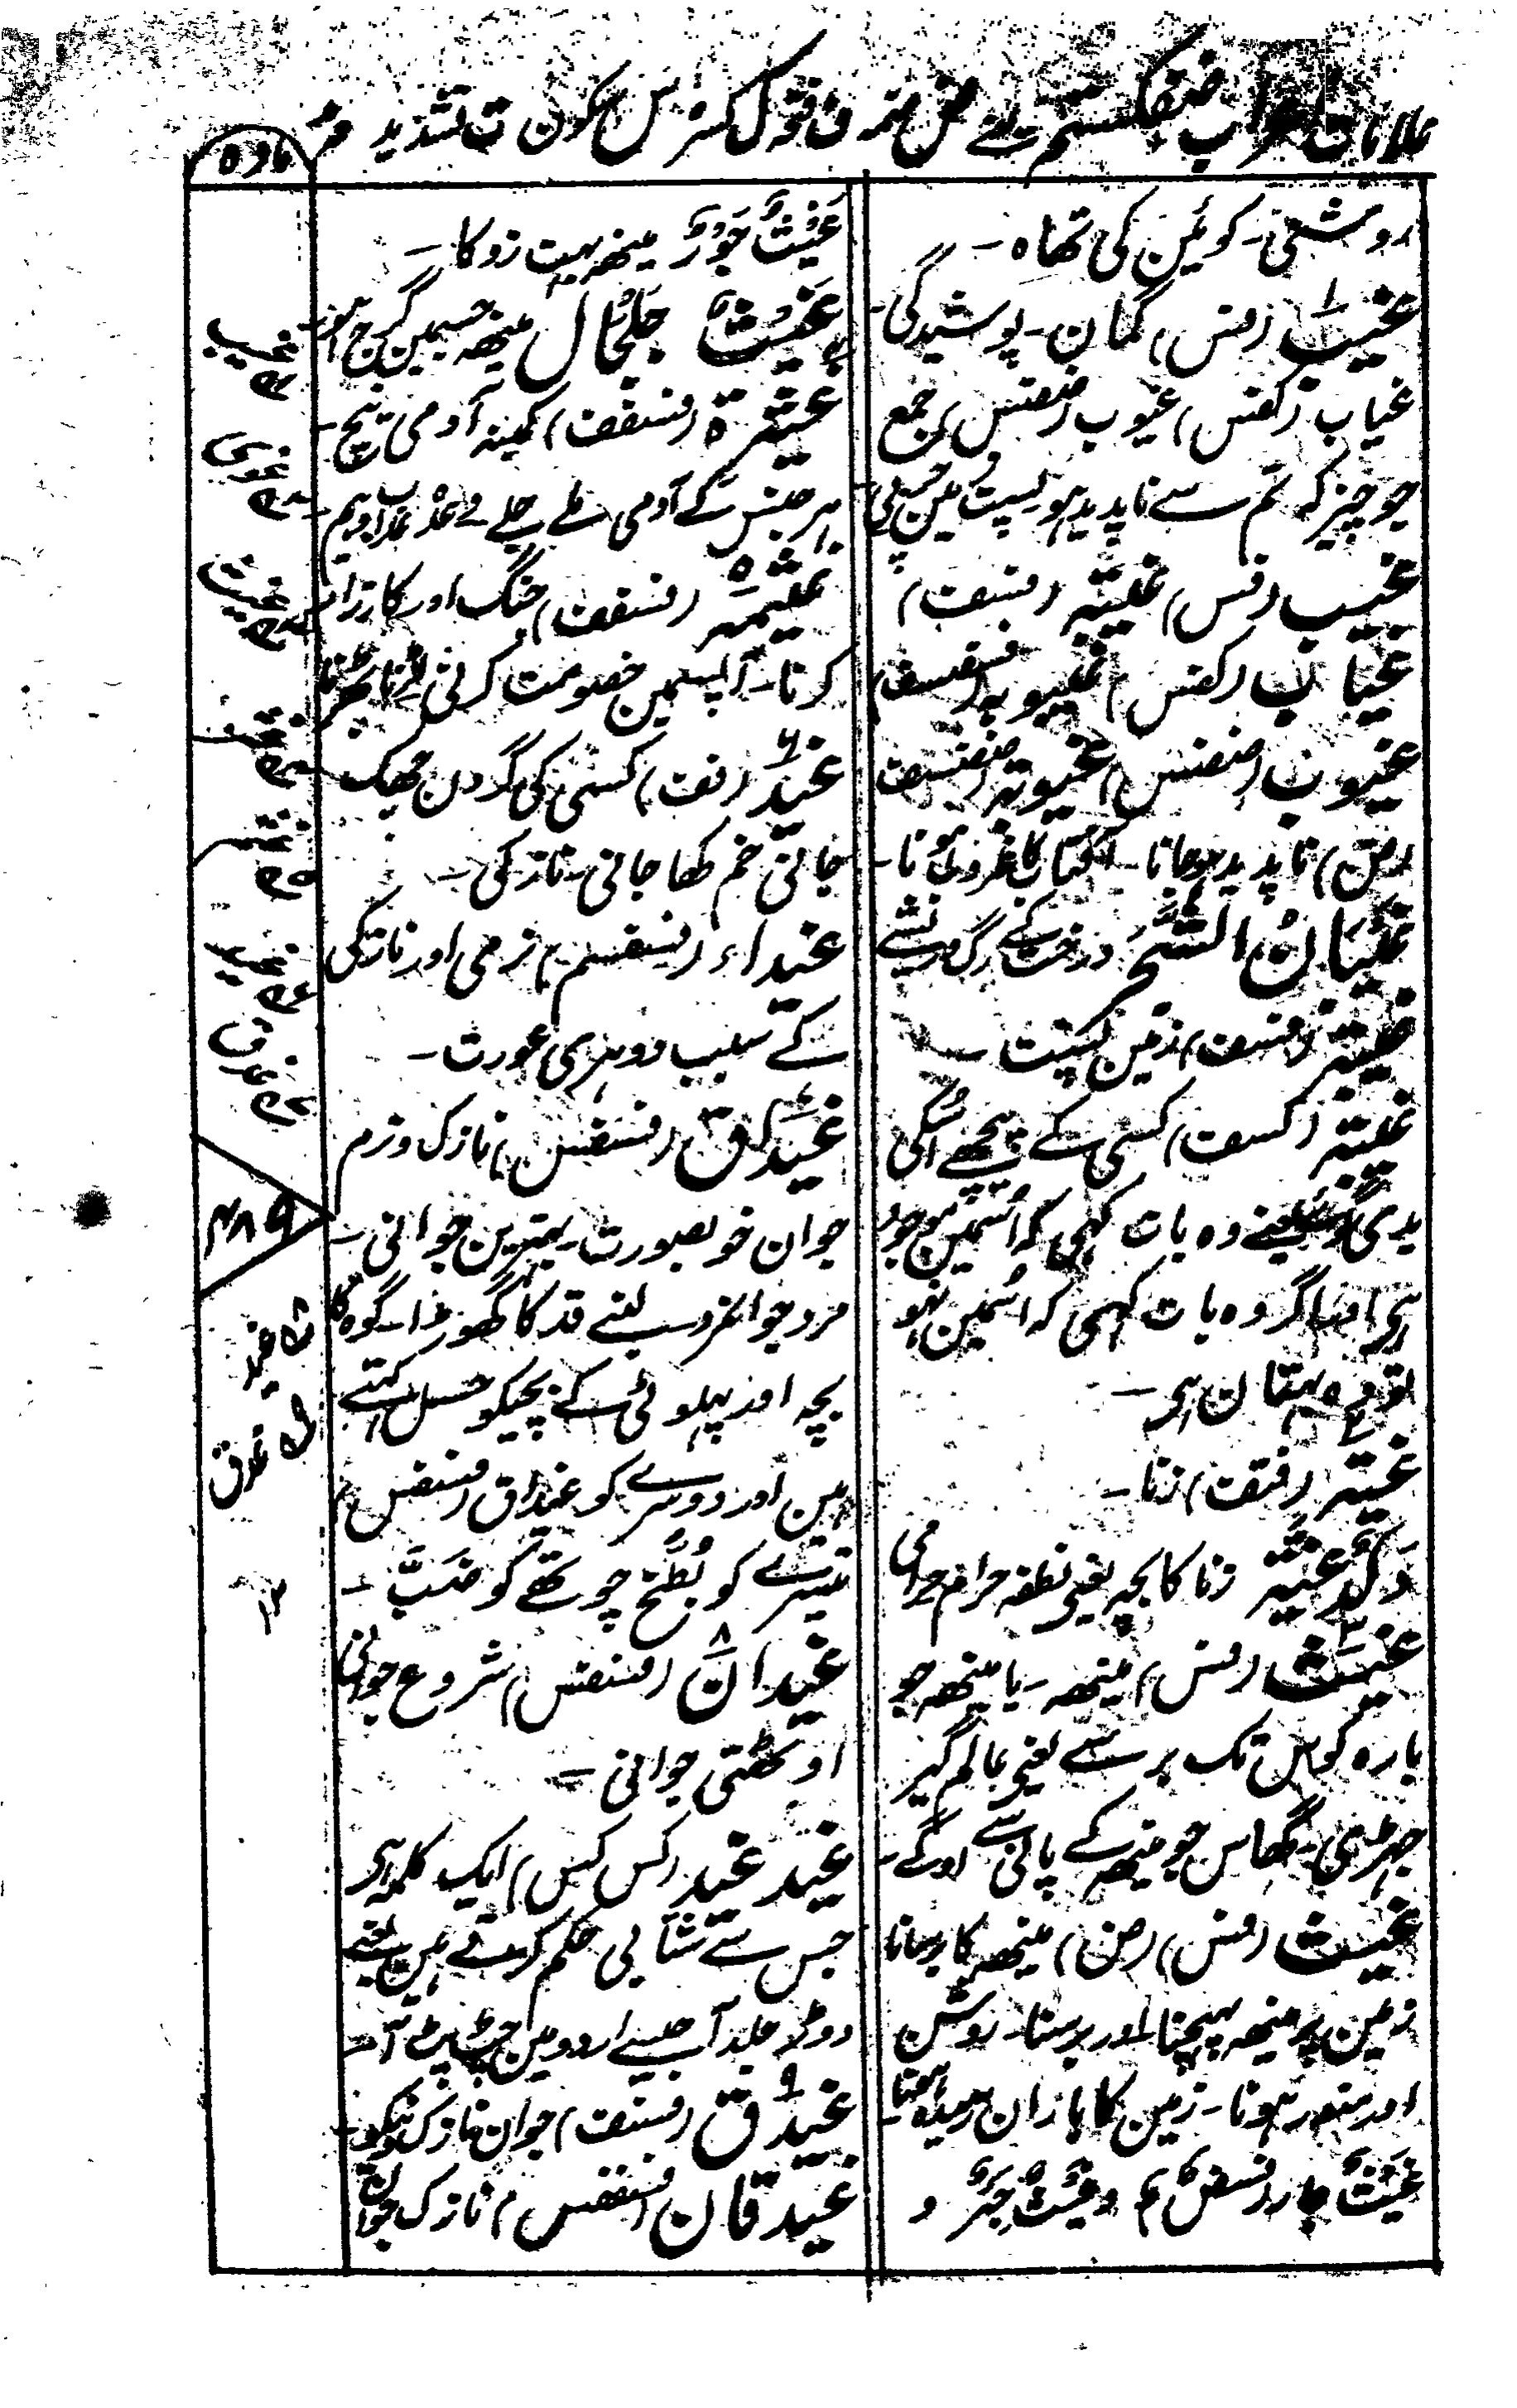 علامات اعراب ض ف ک س م یعنے ض ضمہ ف فتح ک کسرہ س سکون ت تشدید م مد
مادہ
روشنی۔ کوئین کی تھاہ ۔
غیب (فس) گمان۔ پوشیدگی۔
غیاب (کفس) غیوب (ضفس) جمع
جو چیز کہ تم سے ناپدید ہو پست زمین
غیب (فس) غیبۃ (فسفت)
غیاب (کفس) غیبوبہ (فسضسفت)
غیوب (ضضس) غیوبۃ (ضضسفت)
(ض) ناپدید ہوجانا۔ آفتاب کا غروب ہونا۔
غَیبَانُ الشَّجَر درخت کے رگ ریشے
غیبۃ (فسفت) زمین پست ۔
غیبۃ (کسفت) کسی کے پیچھے اُسکی
بدی گو سچے وہ بات کہی کہ اُسمین موجود
ہی اور اگر وہ بات کہی کہ اُسمین نہو
تو وہ بہتان ہی ۔
غیۃ (فتفت) زنا۔
وَلَدُ غَیَّۃ زنا کا بچہ یعنی نطفہ حرام حرامی
غیث (فس) مینھہ۔ یا مینھہ جو
بارہ کوس تک برسے یعنی عالم گیر
جھڑی۔ گھاس جو مینھہ کے پانی سے اوگے۔
غیث (فس) (ض) مینھہ کا برسانا
زمین پر مینھہ پہچنا اور برسنا۔ روشن
اور منور ہونا۔ زمین کا باران رسیدہ ہونا۔
غَیثٌ جار و غَیثٌ جِوَرٌّ و
غَیثٌ جَوَرٌّ مینھہ بہت زور کا۔
غَیثٌ جَلجَال مینھہ جسمین گرج ہو۔
غیثرۃ (فسففت) کمینہ آدمی ہیچ۔
ہر جنس کے آدمی ملے جلے
غیثمہ (فسففت) جنگ اور کارزار
کرنا۔ آپسمین خصومت کرنی لڑنا بھڑنا
غید (فت) کسی کی گردن جھک
جانی خم کھا جانی۔ نازکی ۔
غیداء (فسفسم) نرمی اور نازکی
کے سبب دوہری عورت۔
غیداق (فسفس) نازک و نرم
جوان خوبصورت۔ بہترین جوانی۔
مرد جوانمرد۔ لنبے قد کا گھوڑا۔ گوہ کا
بچہ اور پہلوٹی کے بچیکو حسل کہتے
ہین اور دوسرے کو غیداق (فسفس)
تیسرے کو مُطَبِّخ چوتھے کو ضَبّ ۔
غیدان (فسفس) شروع جوانی
اوٹھتی جوانی ۔
غید غید (کس کس) ایک کلمہ ہی
جس سے شتابی حکم کرتے ہین یعنے
دوڑ جلد آ جیسے اردو مین جھٹ پٹ آ۔
غیدق (فسفت) جوان نازک نیکو۔
غیدقان (فسففس) نازک جوان
غیب
۱ھ
غوی
۲ھ
غیث
۳ھ
غثر
۴ھ
غثم
۵ھ
غید
۶ھ
غدق
۷ھ
۴۸۹
۸ غید
۹ غدق
۱۲